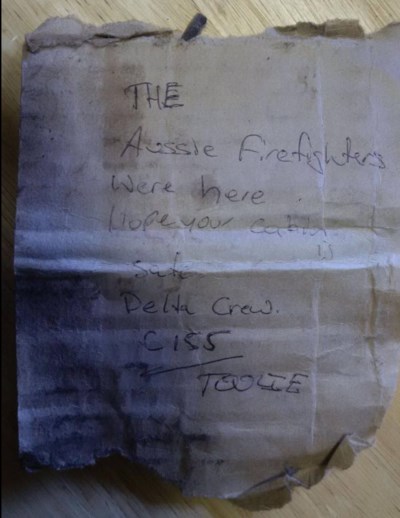 THE
Aussie Firefighters
Were here.
Hope your cabin
is
safe
Delta Crew.
C155
TOOLIE